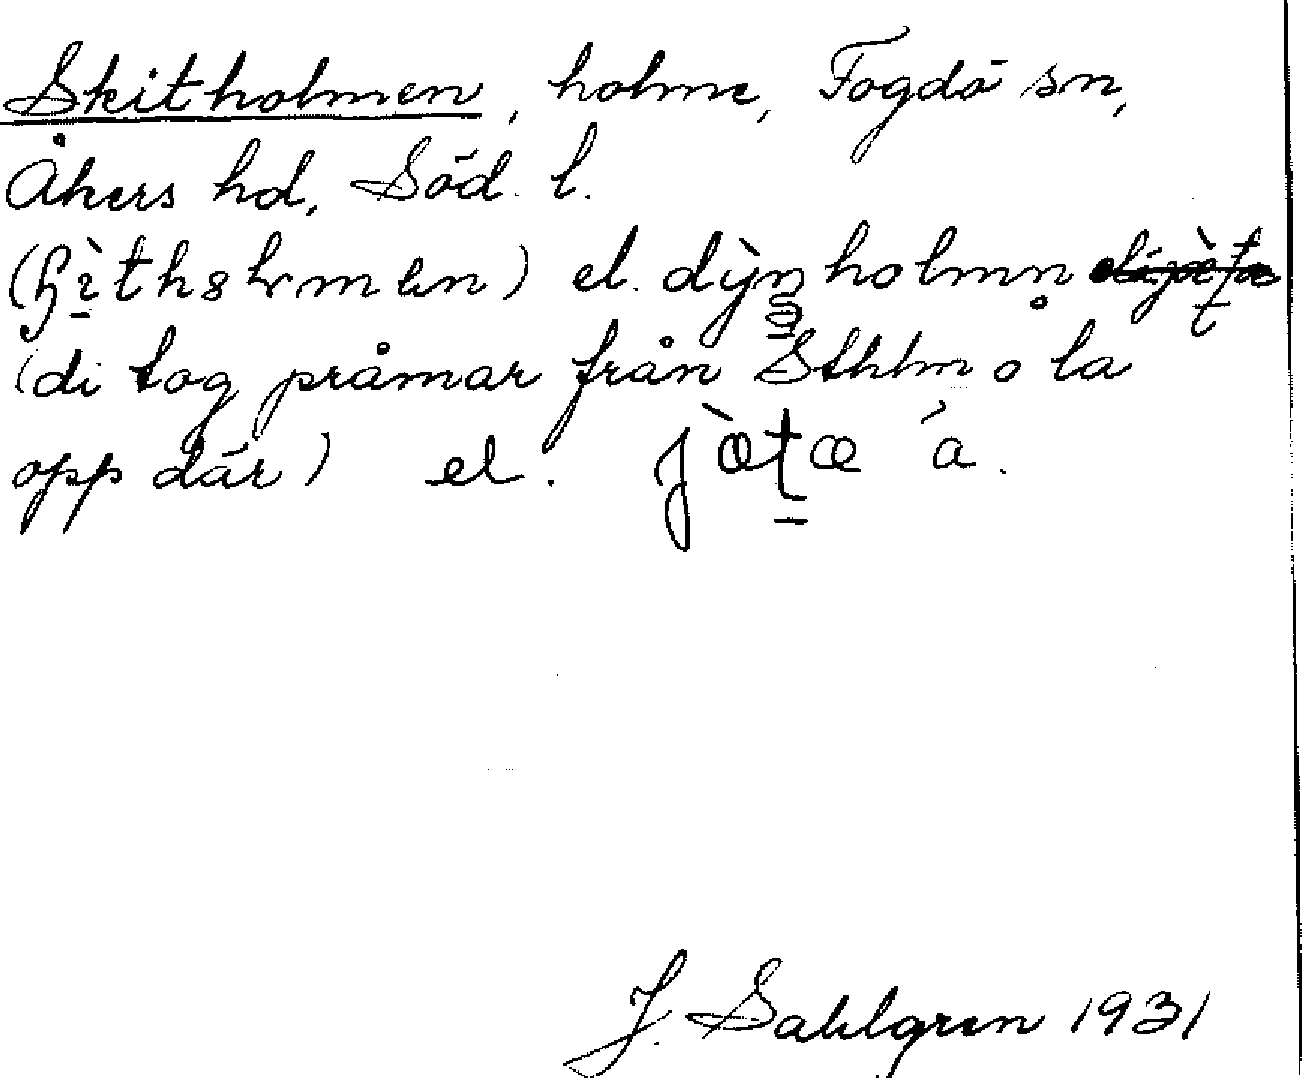 Skitholmen, holme, Fogdö sn,
Åkers hd, Söd. l.
el. dỳn̥holmn̥
(di tog pråmar från Sthlm o la
opp där) el. jæ̀tæ ́a.
J. Sahlgren 1931